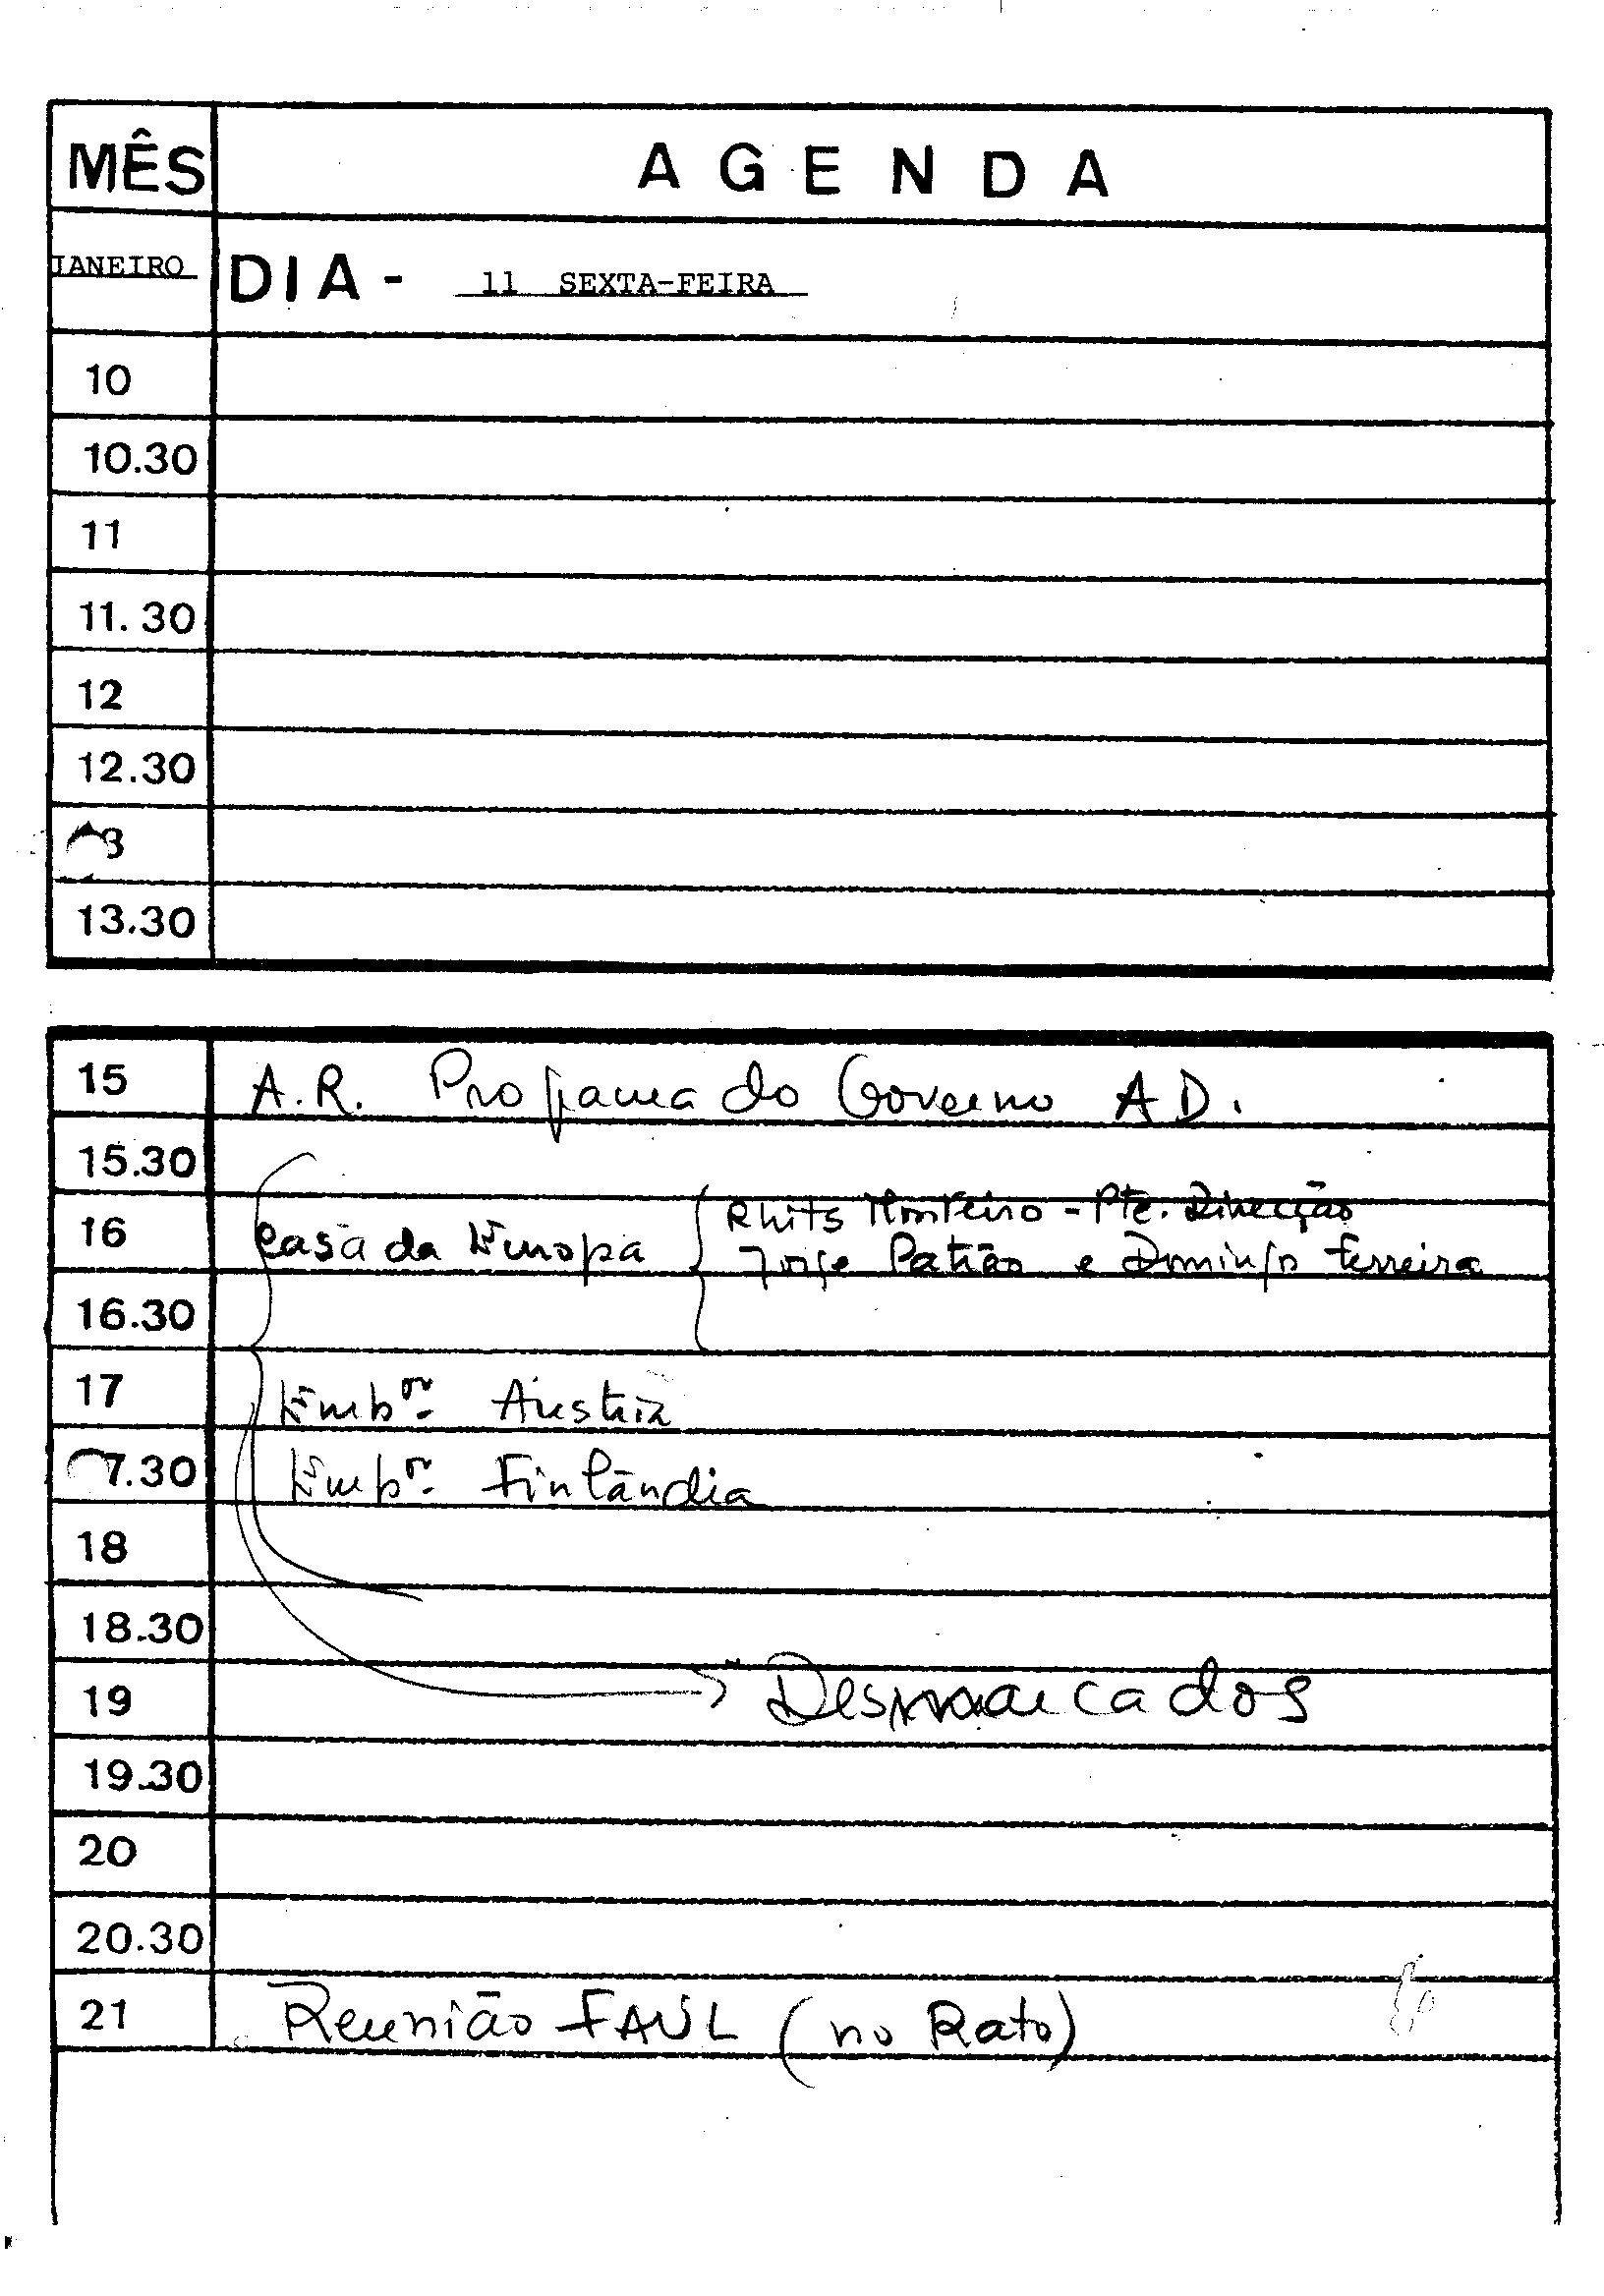 MÊS AGENDA
JANEIRO DIA - 11 SEXTA-FEIRA
10
10.30
11
11.30
12
12.30
3
13.30
15 A.R. Programa do Governo AD.
15.30
16 Casa da Europa { Monteiro - Pte. Direcção
Jorge Patrão e Domingo Ferreira
16.30
17 Embor. Austria
7.30 Embor. Finlândia
18
18.30
19 Desmarcados
19.30
20
20.30
21 Reunião FAUL (no Rato)